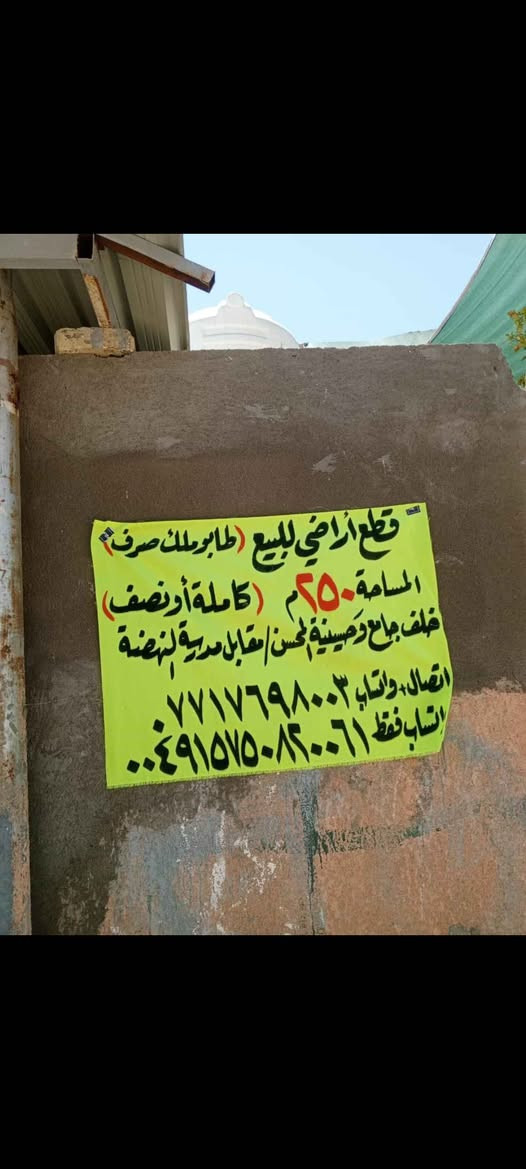 قطع أراضي للبيع (طابو ملك صرف)
المساحة ٢٥٠م (كاملة أو نصف)
خلف جامع وحسينية المحسن / مقابل مدرسة النهضة
اتصال + واتساب ٠٧٧١٧٦٩٨٠٠٣
واتساب فقط ٠٠٤٩١٥٧٥٠٨٢٠٠٦١